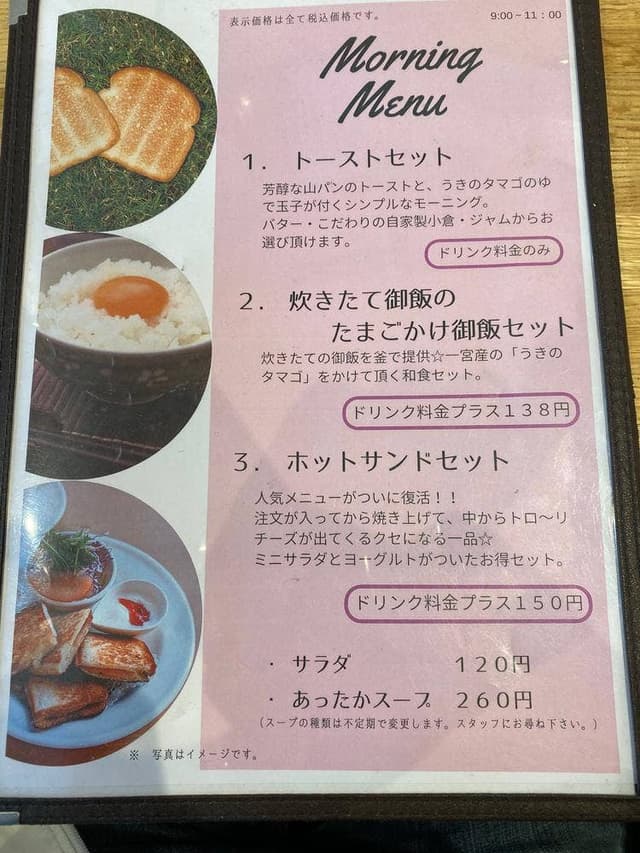 表示価格は全て税込価格です。
9:00－11：00
Morning
Menu
1. トーストセット
芳醇な山パンのトーストと、うきのタマゴのゆ
で玉子が付くシンプルなモーニング。
バター・こだわりの自家製小倉・ジャムからお
選び頂けます。
ドリンク料金のみ
2. 炊きたて御飯の
たまごかけ御飯セット
炊きたての御飯を釜で提供☆一宮産の「うきの
タマゴ」をかけて頂く和食セット。
ドリンク料金プラス１３８円
3. ホットサンドセット
人気メニューがついに復活！！
注文が入ってから焼き上げて、中からトロ〜リ
チーズが出てくるクセになる一品☆
ミニサラダとヨーグルトがついたお得セット。
ドリンク料金プラス１５０円
・サラダ　１２０円
・あったかスープ　２６０円
（スープの種類は不定期で変更します。スタッフにお尋ね下さい。）
※　写真はイメージです。